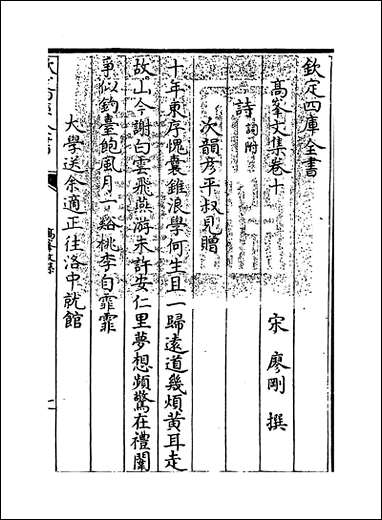 欽定四庫全書
高峯文集卷十
宋 廖剛 撰
詩 詞附
次韻彦平叔見贈
十年東序愧囊錐浪學何生且一歸遠道幾煩黄耳走
故山今謝白雲飛燕游未許安仁里夢想頻驚在禮闈
爭似釣臺飽風月一谿桃李自霏霏
大學送余適正往洛中就館